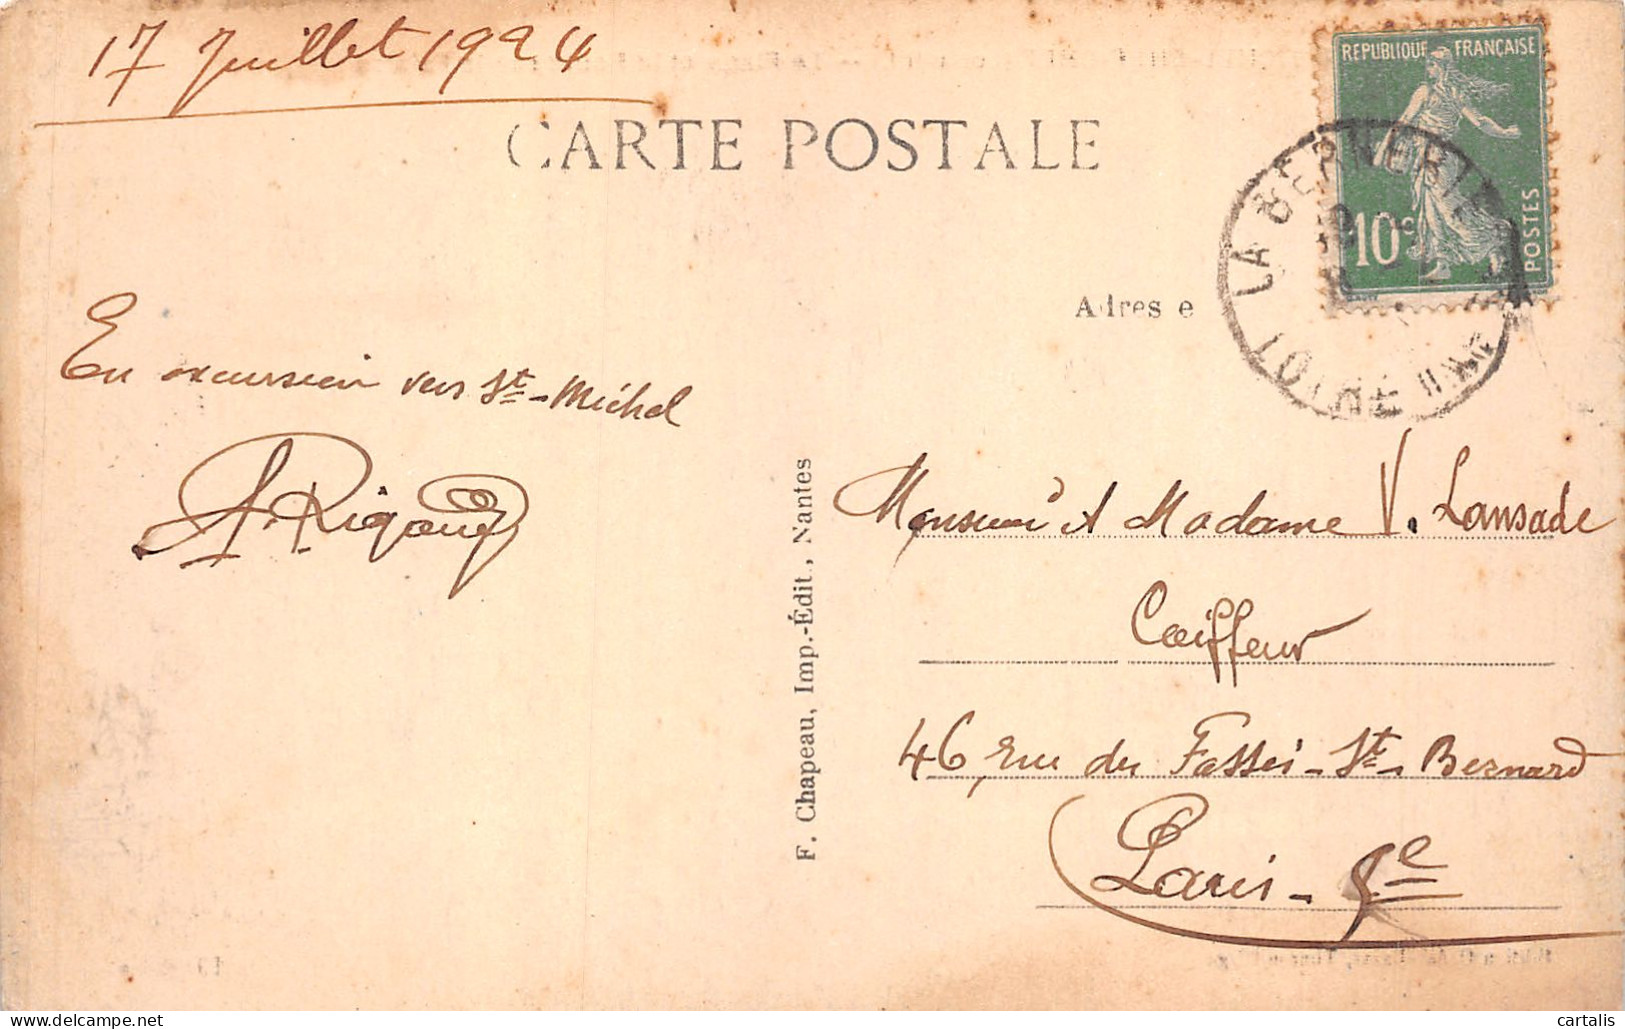 17 Juillet 1924
CARTE POSTALE
REPUBLIQUE FRANÇAISE
10c
POSTES
LA BERNERIE
LOIRE INF
Adresse
En excursion vers St-Michel
A. Rigaud
F. Chapeau, Imp.-Édit., Nantes
Monsieur et Madame V. Lansade
Coiffeur
46, rue des Fossés-St-Bernard
Paris - 5e
cartalis